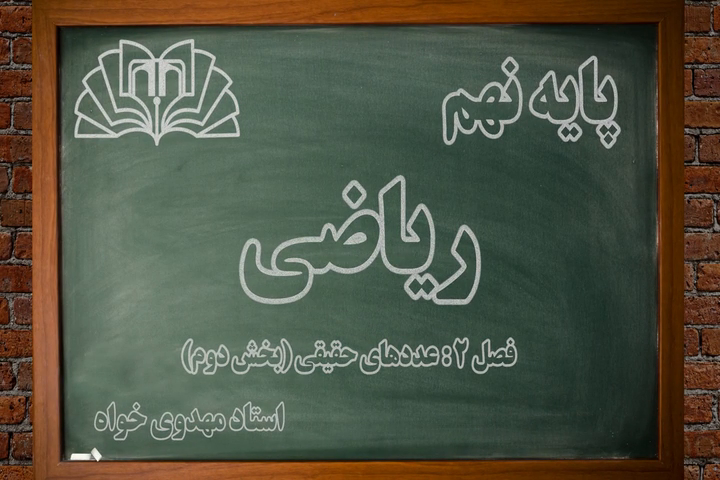 پایه نهم
ریاضی
فصل ۲ : عددهای حقیقی (بخش دوم)
استاد مهدوی خواه